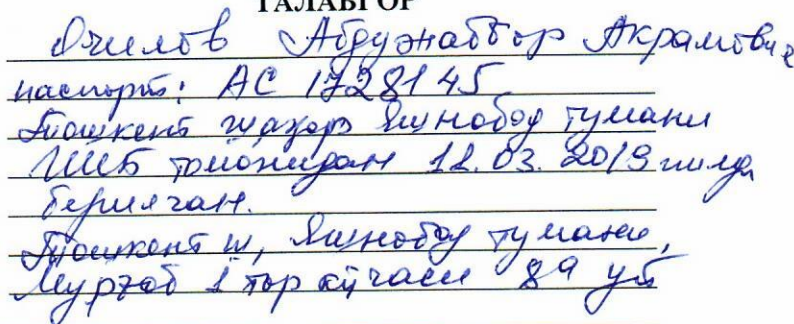 ТАЛАБГОР
Очилов Абдужаббор Акрамович
паспорт: АС 1728145
Тошкент шахар Яшнобод тумани
ИИБ томонидан 12.03.2019 йилда
берилган.
Тошкент ш, Яшнобод тумани,
Мурғоб 1 тор кўчаси 89 уй